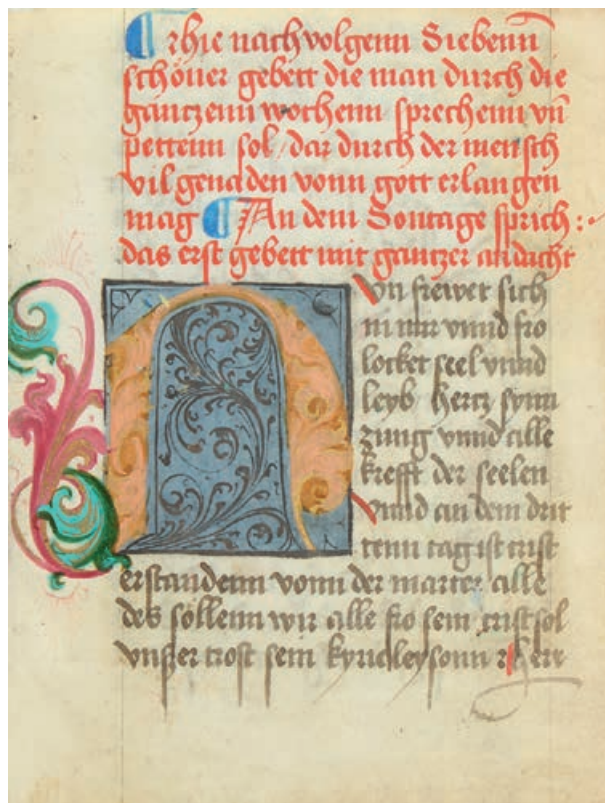 ¶ Hie nachvolgenn Siebenn
schöner gebett die man durch die
gantzenn wochenn sprechenn vn̄
pettenn sol / dar durch der mensch
vil genaden vonn gott erlangen
mag ¶ An dem Sontage sprich :
das erst gebett mit gantzer andacht
Nun frewet sich
in mir vnnd fro
locket seel vnnd
leyb hertz synn
zung vnnd alle
krefft der seelen
Vnnd an dem drit
tenn tag ist crist
erstandenn vonn der marter alle
des sollenn wir alle fro sein crist sol
vnßer trost sein kyrieleysonn herr